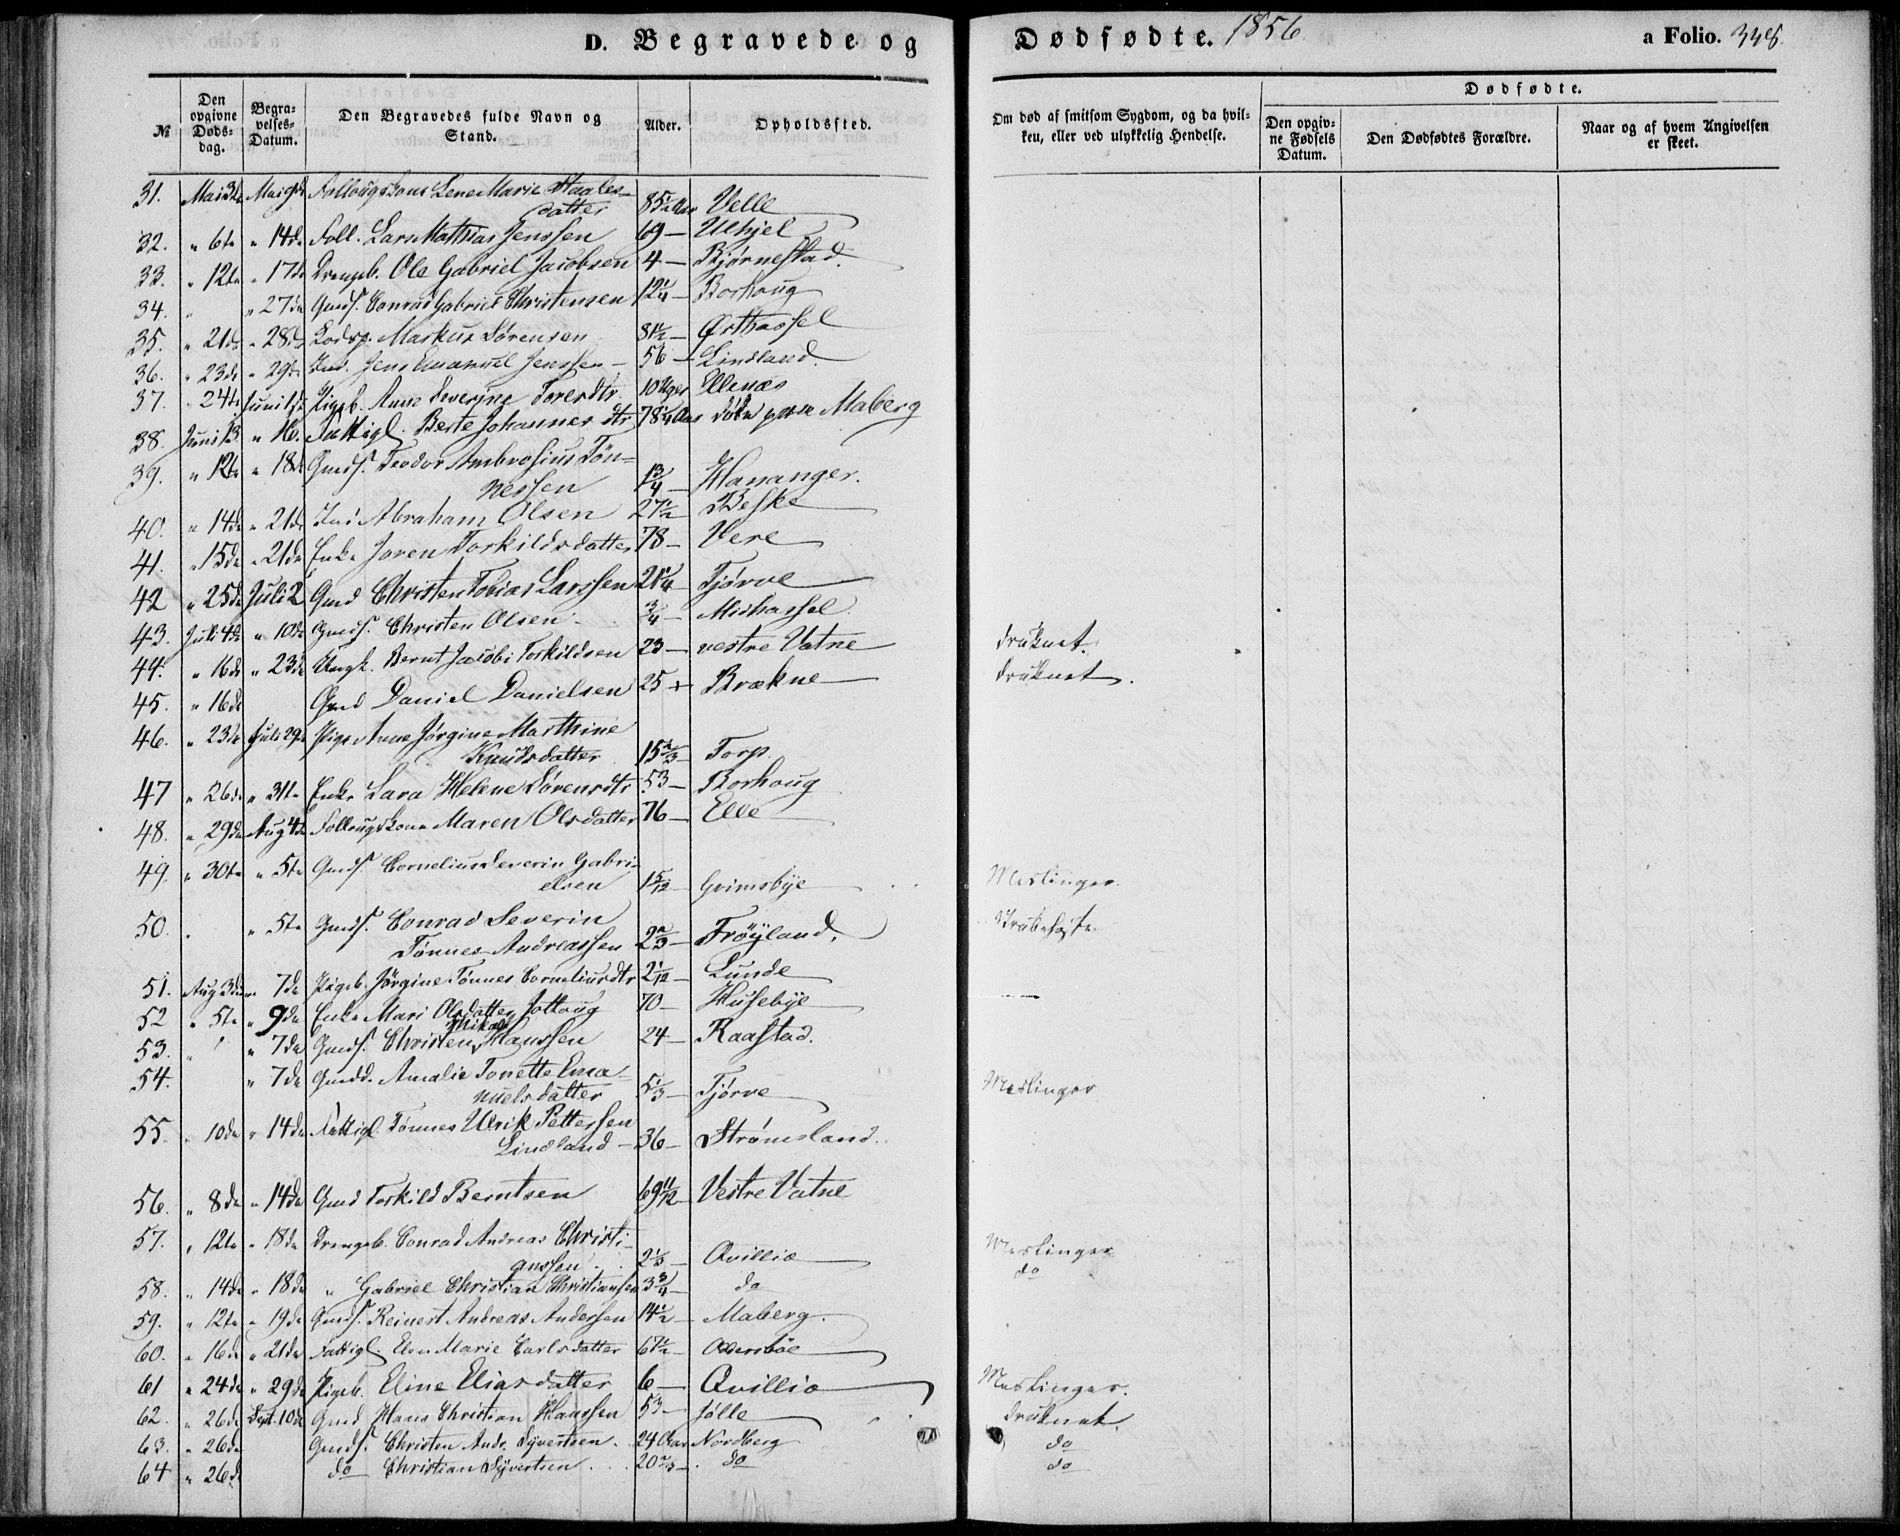 D. Begravede og Dødfødte. 1856 a Folio. 348.
№ Den opgivne Døds-dag. Begra-velses-Datum. Den Begravedes fulde Navn og Stand. Alder. Opholdssted. Om død af smitsom Sygdom, og da hvil-ken, eller ved ulykkelig Hendelse. Dødfødte. Den opgiv-ne Fødsels Datum. Den Dødfødtes Forældre. Naar og af hvem Angivelsen er skeet.
31. Mai 3te Mai 9de Follougskone Lene Marie Staales-
datter 85 1/2 Aar Velle
32. " 6te " 14de Foll. Lars Mathias Jenssen 69 — Ulhjel
33. " 12te " 17de Drengeb. Ole Gabriel Jacobsen 4 — Bjørnestad.
34. " " 27de Gmds. Conrad Gabriel Christensen 12 1/4 — Borhoug
35. " 21de " 28de Lods. Markus Sørensen 81 1/2 — Østhassel
36. " 23de " 29de Ind. Jens Emanuel Jenssen — 56 — Lindland.
37. " 24de Juni 1ste Pigeb. Anne Severine Toresdtr. 10 Uger Ellenæs
38. Juni 13 " 16. Fattigl. Berte Johannesdtr 78 1/4 Aar Maberg
39. " 12te " 18de Gmds. Teodor Ambrosius Tön-
nessen 1 3/4 — Hananger.
40. " 14de " 21de Ind Abraham Olsen 27 1/2 Beske
41. " 15de " 21de Enke Joren Torkildsdatter 78 — Vere
42 " 25de Juli 2 Gmd Christen Tobias Larssen 21 1/4 — Tjørve
43. Juli 4de " 10de Gmds. Christen Olsen 3/4 — Midhassel
44. " 16de " 23de Ungk. Bernt Jacobi Torkildsen 23 — vestre Vatne druknet.
45. " 16de Gmd Daniel Danielsen 25 + Brækne druknet.
46. " 23de Juli 29de Pige Anne Jørgine Marthine
Knudsdatter 15 2/3 — Torp.
47 " 26de " 31te Enke Sara Helene Sørensdtr 53 — Borhoug
48. " 29de Aug 4de Follougskone Maren Olsdatter 76 — Elle
49. " 30te " 5te Gmds. Cornelius Severin Gabri-
elsen 1 5/12 — Grimsbye Meslinger.
50. " " 5te Gmds. Conrad Severin
Tønnes Andreassen 2 2/3 — Frøyland. Strubehoste
51. Aug 3die " 7de Pigeb. Jörgine Tönnes Corneliusdtr 2 1/12 — Lunde —
52 " 5te " 9de Enke Mari Olsdatter Jottoug 70 — Husebye
53. " " 7de Gmds. Christen Mikal Hanssen 24 — Raastad.
54. " 7de Gmdd. Amalie Tonette Ema-
nuelsdatter 5 1/3 — Tjørve Meslinger
55. " 10de " 14de Fattigl. Tönnes Ulrik Pettersen
Lindland — 36 — Strömsland.
56. " 8de " 14de Gmd Torkild Berntsen 69 11/12 — Vestre Vatne
57. " 12te " 18de Drengeb. Conrad Andreas Christi-
anssen 2 1/3 — Qvillio Meslinger
58. " 14de " 18de " Gabriel Christian Christianssen 3 3/4 — do do
59. " 12te " 19de Gmds. Reinert Andreas Anderssen 14 1/2 — Maberg.
60. " 16de " 21de Fattigl. Elen Marie Carlsdatter 67 1/2 — Ødersböe
61 " 24de " 29de Pigeb. Eline Eliasdatter 6 — Qvillio Meslinger.
62. " 26de Sept. 10de Gmd Hans Christian Hanssen 53 — Jølle druknet.
63. " 26de Gmds. Christen Andr. Syvertsen. 24 Aar Nordberg do
64 " 26de do Christian Syvertsen 20 2/3 — do do